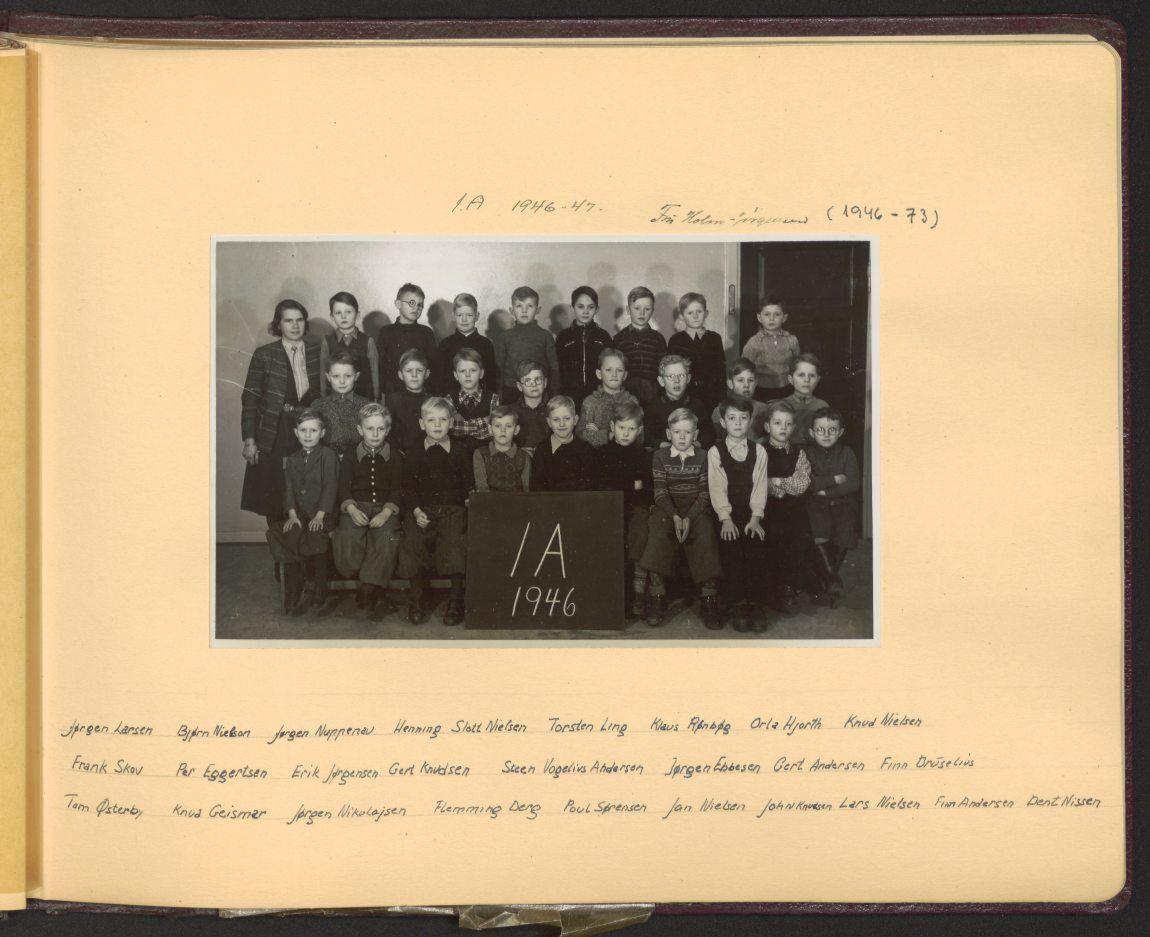 1.A 1946-47. Fru Holm-Jørgensen (1946-73)
1A
1946
Jørgen Larsen Bjørn Nielson Jørgen Nuppenau Henning Slott Nielsen Torsten Ling Klaus Rønbøg Orla Hjorth Knud Nielsen
Frank Skov Per Eggertsen Erik Jørgensen Gert Knudsen Steen Vogelius Andersen Jørgen Ebbesen Gert Andersen Finn Drüselius
Tom Østerby Knud Geismar Jørgen Nikolajsen Flemming Derg Poul Sørensen Jan Nielsen John Knudsen Lars Nielsen Finn Andersen Dent Nissen